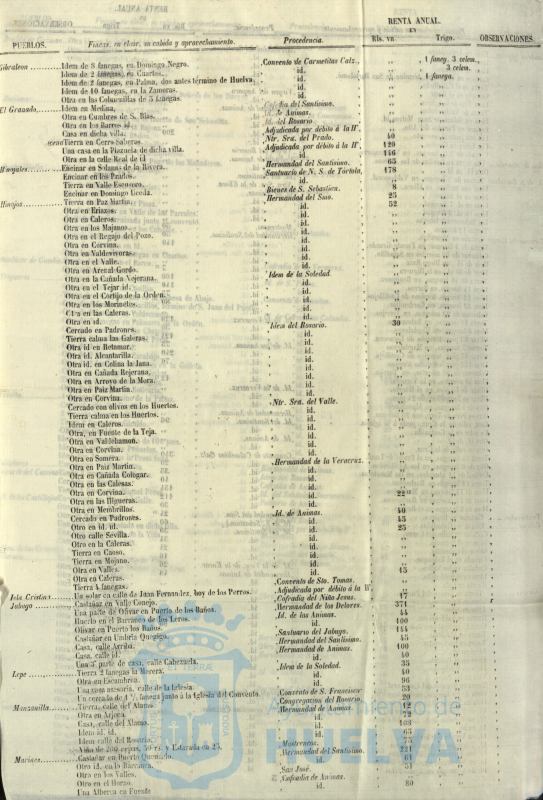 RENTA ANUAL.
EN
PUEBLOS. Fincas, su clase, su cabida y aprovechamiento. Procedencia. Rls. vn. Trigo. OBSERVACIONES.
Gibraleon Idem de 8 fanegas, en Domingo Negro. Convento de Carmelitas Calz. 1 faneg. 3 celem.
Idem de 2 fanegas, en Cuartos. id. 3 celem.
Idem de 2 fanegas, en Palma, dos antes término de Huelva. id. 1 fanega.
Idem de 10 fanegas, en la Zamoras. id.
Otra en las Columnillas de 5 fanegas. id.
El Granado Idem en Medina. Cofradia del Santisimo.
Otra en Cumbres de S. Blas. Id. de Animas.
Otra en los Barros id. Id. del Rosario
Casa en dicha villa. Adjudicada por débito á la H.
Tierra en Cerro Sabaras Ntr. Sra. del Prado. 40
Una casa en la Plazuela de dicha villa. Adjudicada por débito á la H. 120
Otra en la calle Real de id id. 146
Hinojales Encinar en Solanas de la Rivera. Hermandad del Santisimo. 65
Encinar en los Prados. Santuario de N. S. de Tórtola. 178
Tierra en Valle Escusero. id.
Encinar en Domingo Uceda. Bienes de S. Sebastian. 8
Hinojos Tierra en Paz Martin. Hermandad del Smo. 25
Otra en Eriazos. id. 52
Otra en Caleros. id.
Otra en los Majanos. id.
Otra en el Regajo del Pozo. id.
Otra en Corvina. id.
Otra en Valdevivoras. id.
Otra en el Valle. id.
Otra en Arenal Gordo. id.
Otra en la Cañada Nojerana. Idem de la Soledad.
Otra en el Tejar id. id.
Otra en el Cortijo de la Orden. id.
Otra en los Morinelos. id.
Otra en las Caleras. id.
Otra en id. id.
Cercado en Padrones. Idem del Rosario. 30
Tierra calma las Galeras. id.
Otra id en Retamar. id.
Otra id. Alcantarilla. id.
Otra id. en Celina la Jana. id.
Otra en Cañada Rejerana. id.
Otra en Arroyo de la Mora. id.
Otra en Paiz Martin. id.
Otra en Corvina. id.
Cercado con olivos en los Huertos. Ntr. Sra. del Valle.
Tierra calma en los Huertos. id.
Idem en Caleros. id.
Otra, en Fuente de la Teja. id.
Otra en Valdehamon. id.
Otra en Corvina. id.
Otra en Somera. id.
Otra en Paiz Martin. Hermandad de la Veracruz.
Otra en Cañada Cologar. id.
Otra en las Calesas. id.
Otra en Corvina. id. 22
Otra en las Higueras. id.
Otra en Membrillos. id.
Cercado en Padrones. Id. de Animas. 40
Otro en id. id. id. 45
Otro calle Sevilla. id. 25
Otra en la Caleras. id.
Tierra en Caoso. id.
Tierra en Mojano. id.
Otra en Valles. id. 15
Otra en Caleras. id.
Tierra 4 fanegas. Convento de Sto. Tomas.
Isla Cristina Un solar en calle de Juan Fernandez, hoy de los Perros. Adjudicada por débito á la H.
Jabugo Castañar en Valle Conejo. Cofradia del Niño Jesus. 17
Una parte de Olivar en Puerto de los Baños. Hermandad de los Dolores. 371
Huerto en el Barranco de los Leros. Id. de las Animas. 44
Olivar en Puerto los Baños. id. 100
Castañar en Umbria Quexigo. Santuario del Jabugo. 144
Casa, calle Arriba. Hermandad del Santisimo. 45
Casa, calle id. Hermandad de Animas. 100
Una 3ª parte de casa, calle Cabezuela. id. 40
Lepe Tierra 2 fanegas la Mecera. Idem de la Soledad. 35
Otra en Escambrea. id. 40
Una casa accsoria, calle de la Iglesia. id. 96
Un cercado de 1 ½ fanega junto á la Iglesia del Convento. Convento de S. Francisco 53
Manzanilla Tierra, calle del Alamo. Congregacion del Rosario. 20
Otra en Arjora. Hermandad de Animas. 79
Casa, calle del Alamo. id. 72
Idem id. id. id. 103
Idem calle del Rosario. id. 65
Viña de 200 cepas, 50 rs. y Estacada en 25. Mostrencia. 75
Marines Castañar en Puerto Quemado. Hermandad del Santisimo. 221
Otro id. en lo Barranca. id. 61
Otra en los Valles. San José. 51
Otro en el Horno. Cofradia de Animas.
Una Alberca en Fuente id. 80
Ayuntamiento de
HUELVA